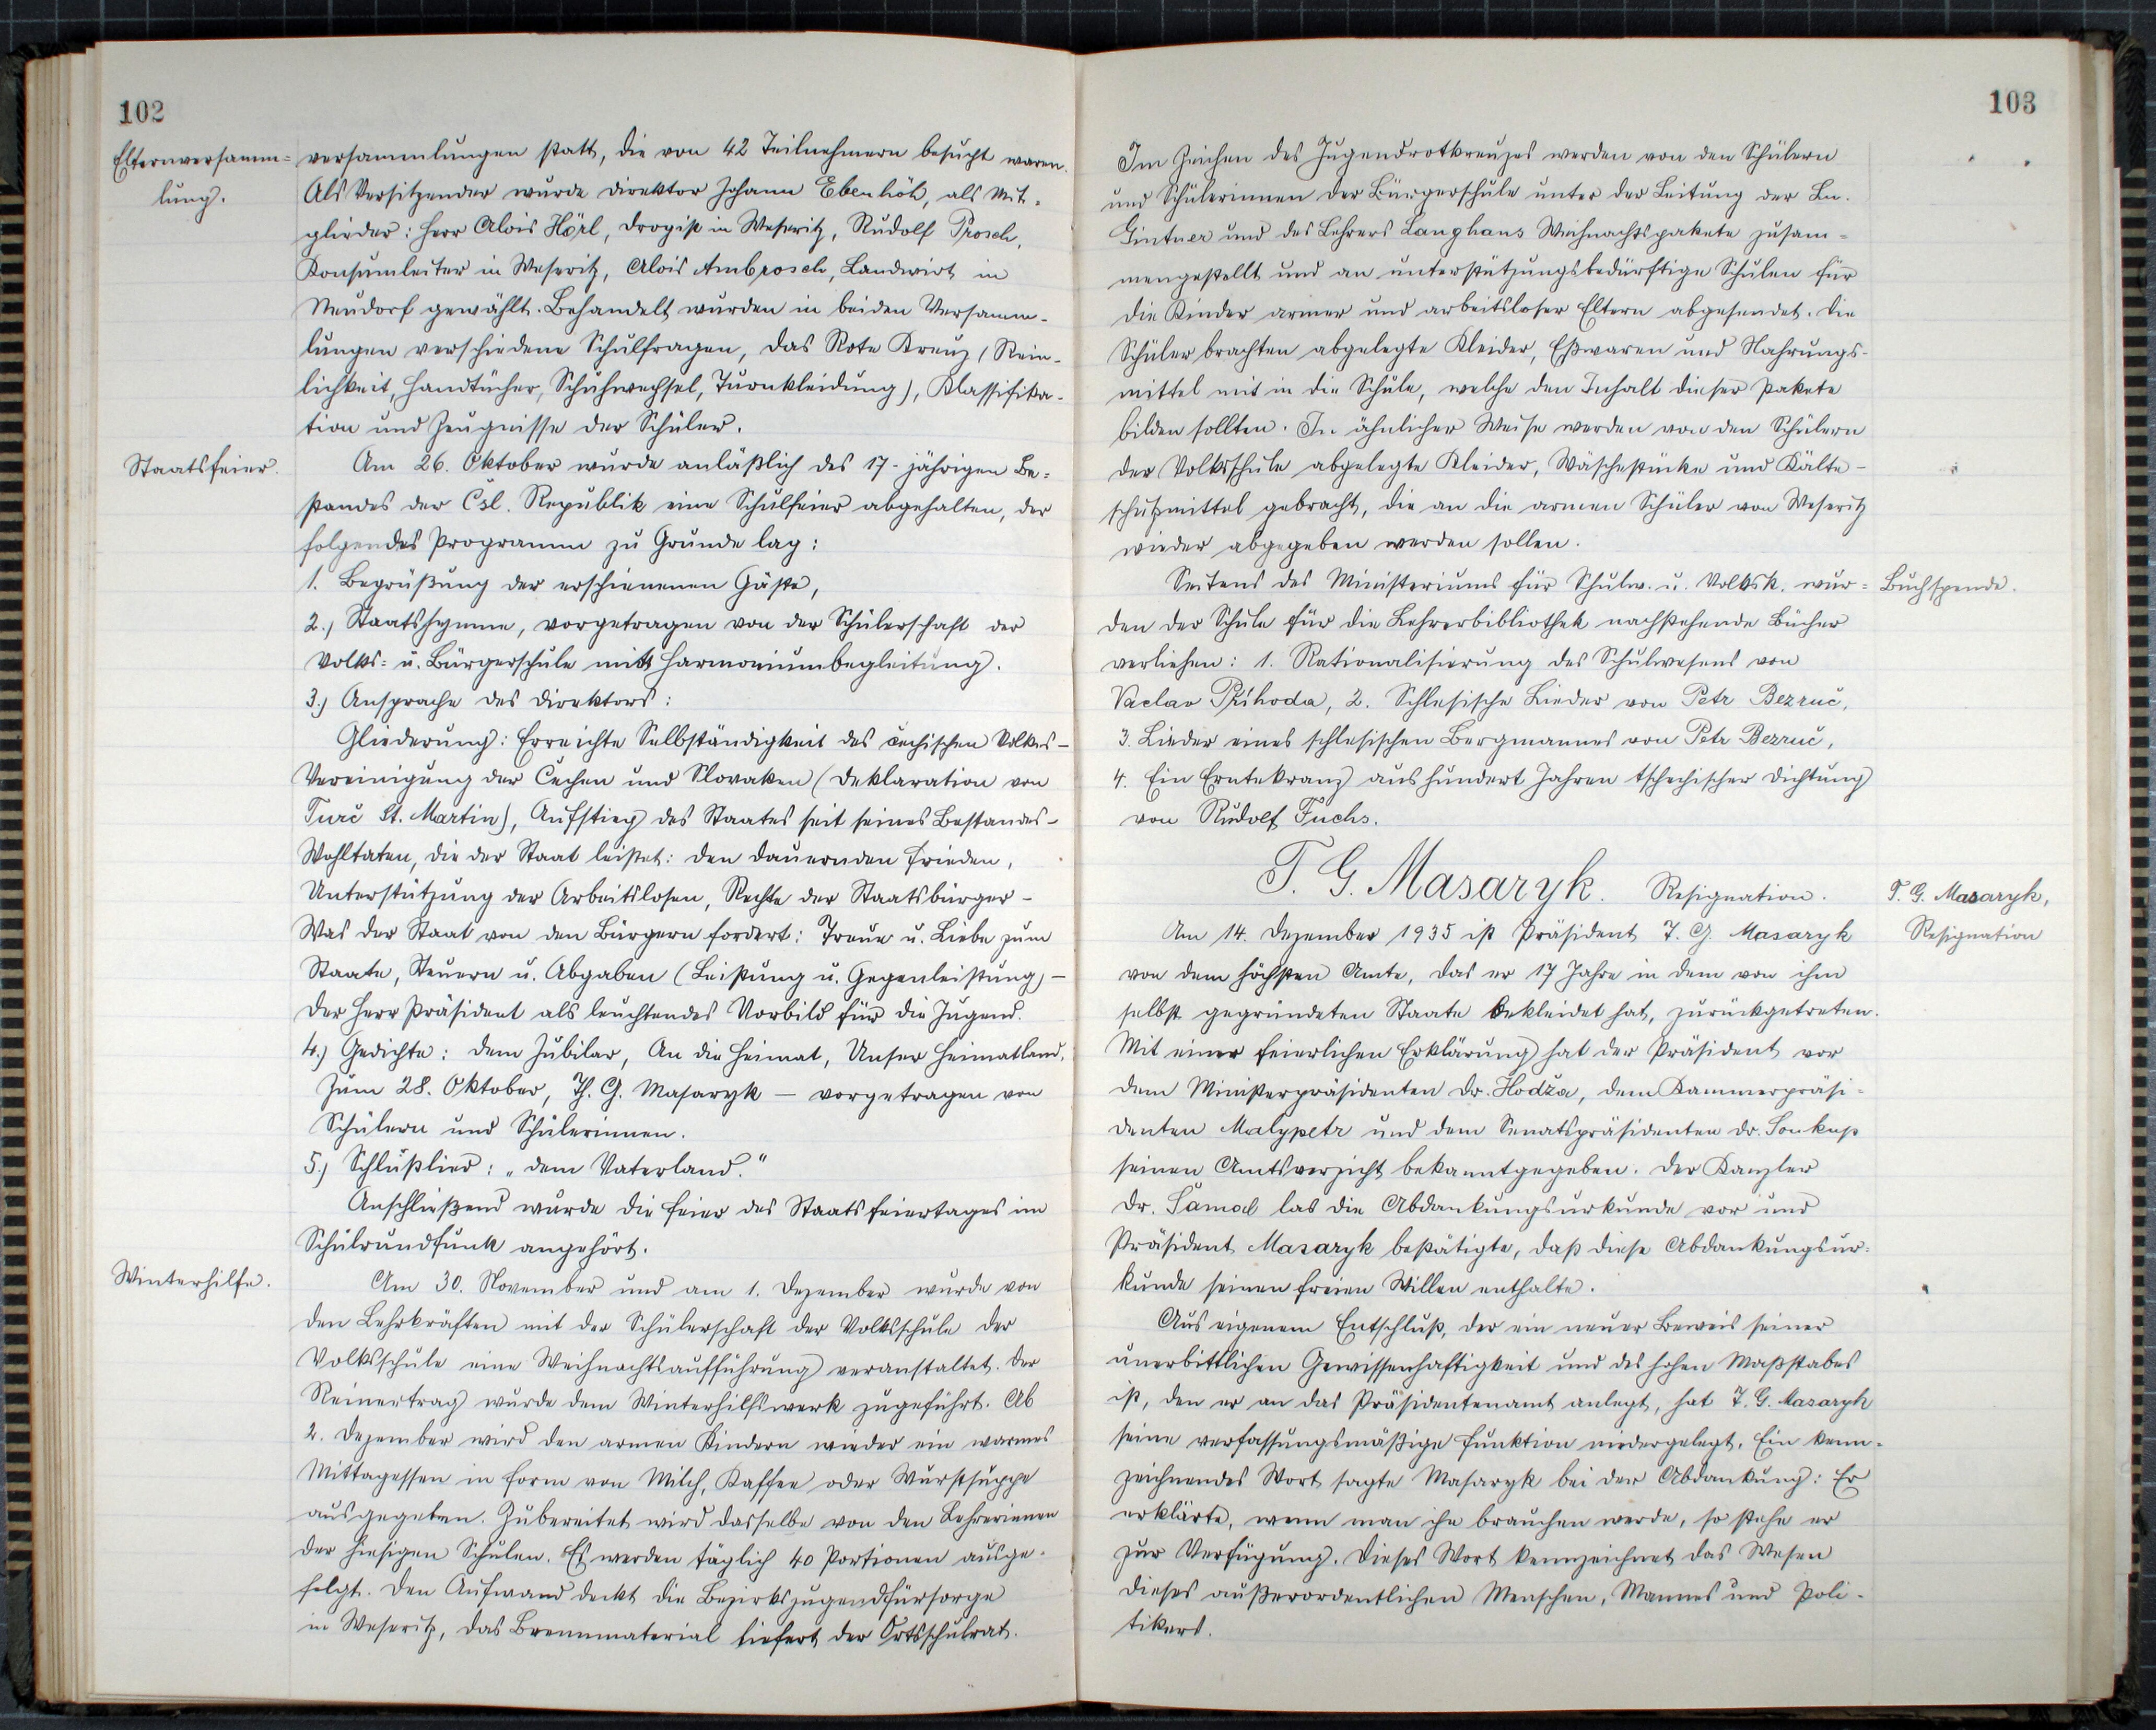 102
Elternversamm=
lung.
versammlungen statt, die von 42 Teilnehmern besucht waren.
Als Vorsitzender wurde Direktor Johann Ebenhöh, als Mit=
glieder: Herr Alois Hörl, Drogist in Weseritz, Rudolf Prosch,
Konsumleiter in Weseritz, Alois Ambrosch, Landwirt in
Neudorf gewählt. Behandelt wurden in beiden Versamm-
lungen verschiedene Schulfragen, das Rote Kreuz (Rein-
lichkeit, Handtücher, Schuhwechsel, Turnkleidung), Klassifika-
tion und Zeugnisse der Schüler.
Staatsfeier.
Am 26. Oktober wurde anläßlich des 17-jährigen Be=
standes der Čsl. Republik eine Schulfeier abgehalten, der
folgendes Programm zu Grunde lag:
1. Begrüßung der erschienenen Gäste,
2.) Staatshymne, vorgetragen von der Schülerschaft der
Volks= u. Bürgerschule mit Harmoniumbegleitung.
3.) Ansprache des Direktors:
Gliederung: Erreichte Selbständigkeit des čechischen Volkes-
Vereinigung der Čechen und Slovaken (Deklaration von
Turč St. Martin), Aufstieg des Staates seit seines Bestandes-
Wohltaten, die der Staat leistet: den dauernden Frieden,
Unterstützung der Arbeitslosen, Rechte der Staatsbürger-
Was der Staat von den Bürgern fordert: Treue u. Liebe zum
Staate, Steuern u. Abgaben (Leistung u. Gegenleistung)-
Der Herr Präsident als leuchtendes Vorbild für die Jugend.
4.) Gedichte: Dem Jubilar, An die Heimat, Unser Heimatland,
Zum 28. Oktober, Th. G. Masaryk - vorgetragen von
Schülern und Schülerinnen.
5.) Schlußlied: „Dem Vaterland."
Anschließend wurde die Feier des Staatsfeiertages im
Schulrundfunk angehört.
Winterhilfe.
Am 30. November und am 1. Dezember wurde von
den Lehrkräften mit der Schülerschaft der Volksschule der
Volksschule eine Weihnachtsaufführung veranstaltet. Der
Reinertrag wurde dem Winterhilfswerk zugeführt. Ab
2. Dezember wird den armen Kindern wieder ein warmes
Mittagessen in Form von Milch, Kaffee oder Wurstsuppe
ausgegeben. Zubereitet wird dasselbe von den Lehrerinnen
der hiesigen Schulen. Es werden täglich 40 Portionen ausge-
folgt. Den Aufwand deckt die Bezirksjugendfürsorge
in Weseritz, das Brennmaterial liefert der Ortsschulrat.
103
Im Zeichen des Jugendrotkreuzes werden von den Schülern
und Schülerinnen der Bürgerschule unter der Leitung der Ln.
Gintner und des Lehrers Langhans Weihnachtspakete zusam=
mengestellt und an unterstützungsbedürftige Schulen für
die Kinder armer und arbeitsloser Eltern abgesendet. Die
Schüler brachten abgelegte Kleider, Eßwaren und Nahrungs-
mittel mit in die Schule, welche den Inhalt dieser Pakete
bilden sollten. In ähnlicher Weise werden von den Schülern
der Volksschule abgelegte Kleider, Wäschestücke und Kälte-
schutzmittel gebracht, die an die armen Schüler von Weseritz
wieder abgegeben werden sollen.
Seitens des Ministeriums für Schulw. u. Volksk. wur=
Buchspende.
den der Schule für die Lehrerbibliothek nachstehende Bücher
verliehen: 1. Rationalisierung des Schulwesens von
Vaclav Příhoda, 2. Schlesische Lieder von Petr Bezruč,
3. Lieder eines schlesischen Bergmannes von Petr Bezruč,
4. Ein Erntekranz aus hundert Jahren tschechischer Dichtung
von Rudolf Fuchs.
T. G. Masaryk. Resignation.
T. G. Masaryk,
Resignation
Am 14. Dezember 1935 ist Präsident T. G. Masaryk
von dem höchsten Amte, das er 17 Jahre in dem von ihm
selbst gegründeten Staate bekleidet hat, zurückgetreten.
Mit einer feierlichen Erklärung hat der Präsident vor
dem Ministerpräsidenten Dr. Hodža, dem Kammerpräsi=
denten Malypetr und dem Senatspräsidenten Dr. Soukup
seinen Amtsverzicht bekanntgegeben. Der Kanzler
Dr. Šamal las die Abdankungsurkunde vor und
Präsident Masaryk bestätigte, daß diese Abdankungsur=
kunde seinen freien Willen enthalte.
Aus eigenem Entschluß, der ein neuer Beweis seiner
unerbittlichen Gewissenhaftigkeit und des hohen Maßstabes
ist, den er an das Präsidentenamt anlegt, hat T. G. Masaryk
seine verfassungsmäßige Funktion niedergelegt. Ein kenn-
zeichnendes Wort sagte Masaryk bei der Abdankung: Er
erklärte, wenn man ihn brauchen werde, so stehe er
zur Verfügung. Dieses Wort kennzeichnet das Wesen
dieses außerordentlichen Menschen, Mannes und Poli-
tikers.